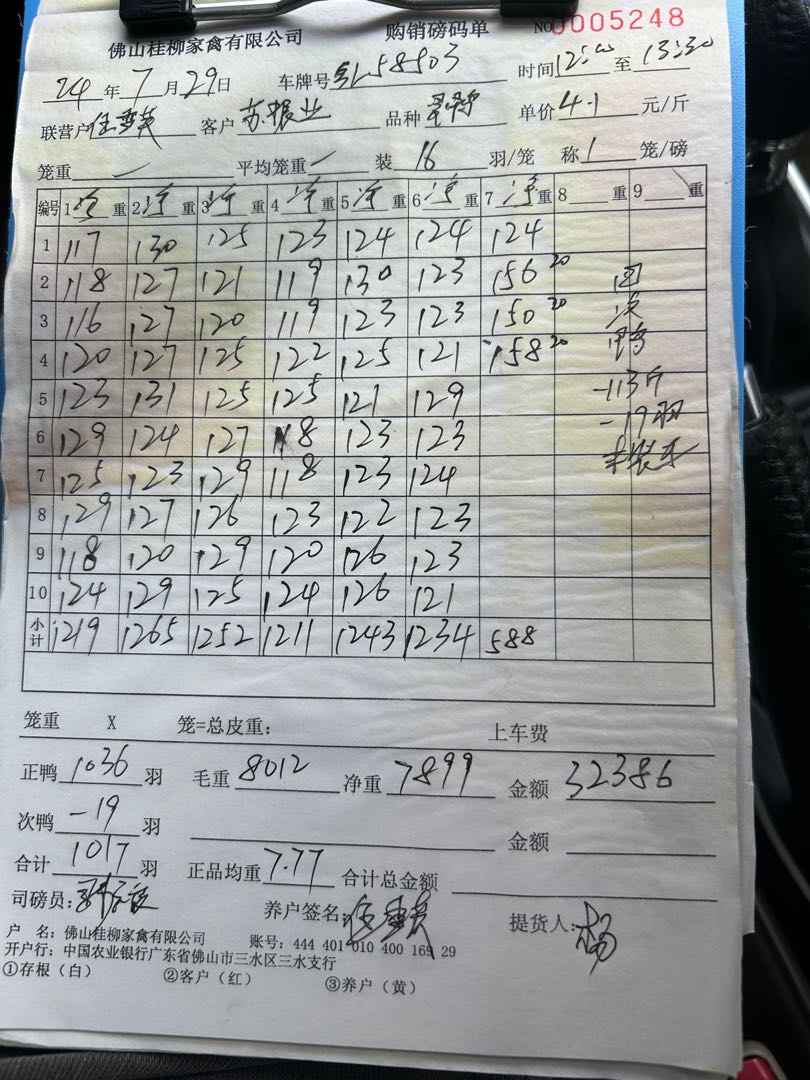 佛山桂柳家禽有限公司 购销磅码单 NO0005248
24 年 7 月 29 日 车牌号 58503 时间 12:00 至 13:30
联营户 任雪英 客户 苏振业 品种 单价 4.1 元/斤
笼重 — 平均笼重 — 装 16 羽/笼 称 1 笼/磅
编号 1 净 重 2 净 重 3 净 重 4 净 重 5 净 重 6 净 重 7 净 重 8 重 9 重
1 117 130 125 123 124 124 124
2 118 127 121 119 130 123 156 20 回
3 116 127 120 119 123 123 150 20 次
4 120 127 125 122 125 121 158 20 鸭
5 123 131 125 125 121 129 -113斤
6 129 124 127 118 123 123 -19羽
7 125 123 129 118 123 124 未装车
8 129 127 126 123 122 123
9 118 120 129 120 126 123
10 124 129 125 124 126 121
小计 1219 1265 1252 1211 1243 1234 588
笼重 X 笼=总皮重： 上车费
正鸭 1036 羽 毛重 8012 净重 7899 金额 32386
次鸭 -19 羽 金额
合计 1017 羽 正品均重 7.77 合计总金额
司磅员： 养户签名：任雪英 提货人：杨
户 名：佛山桂柳家禽有限公司 账号：444 401 010 400 169 29
开户行：中国农业银行广东省佛山市三水区三水支行
①存根（白） ②客户（红） ③养户（黄）